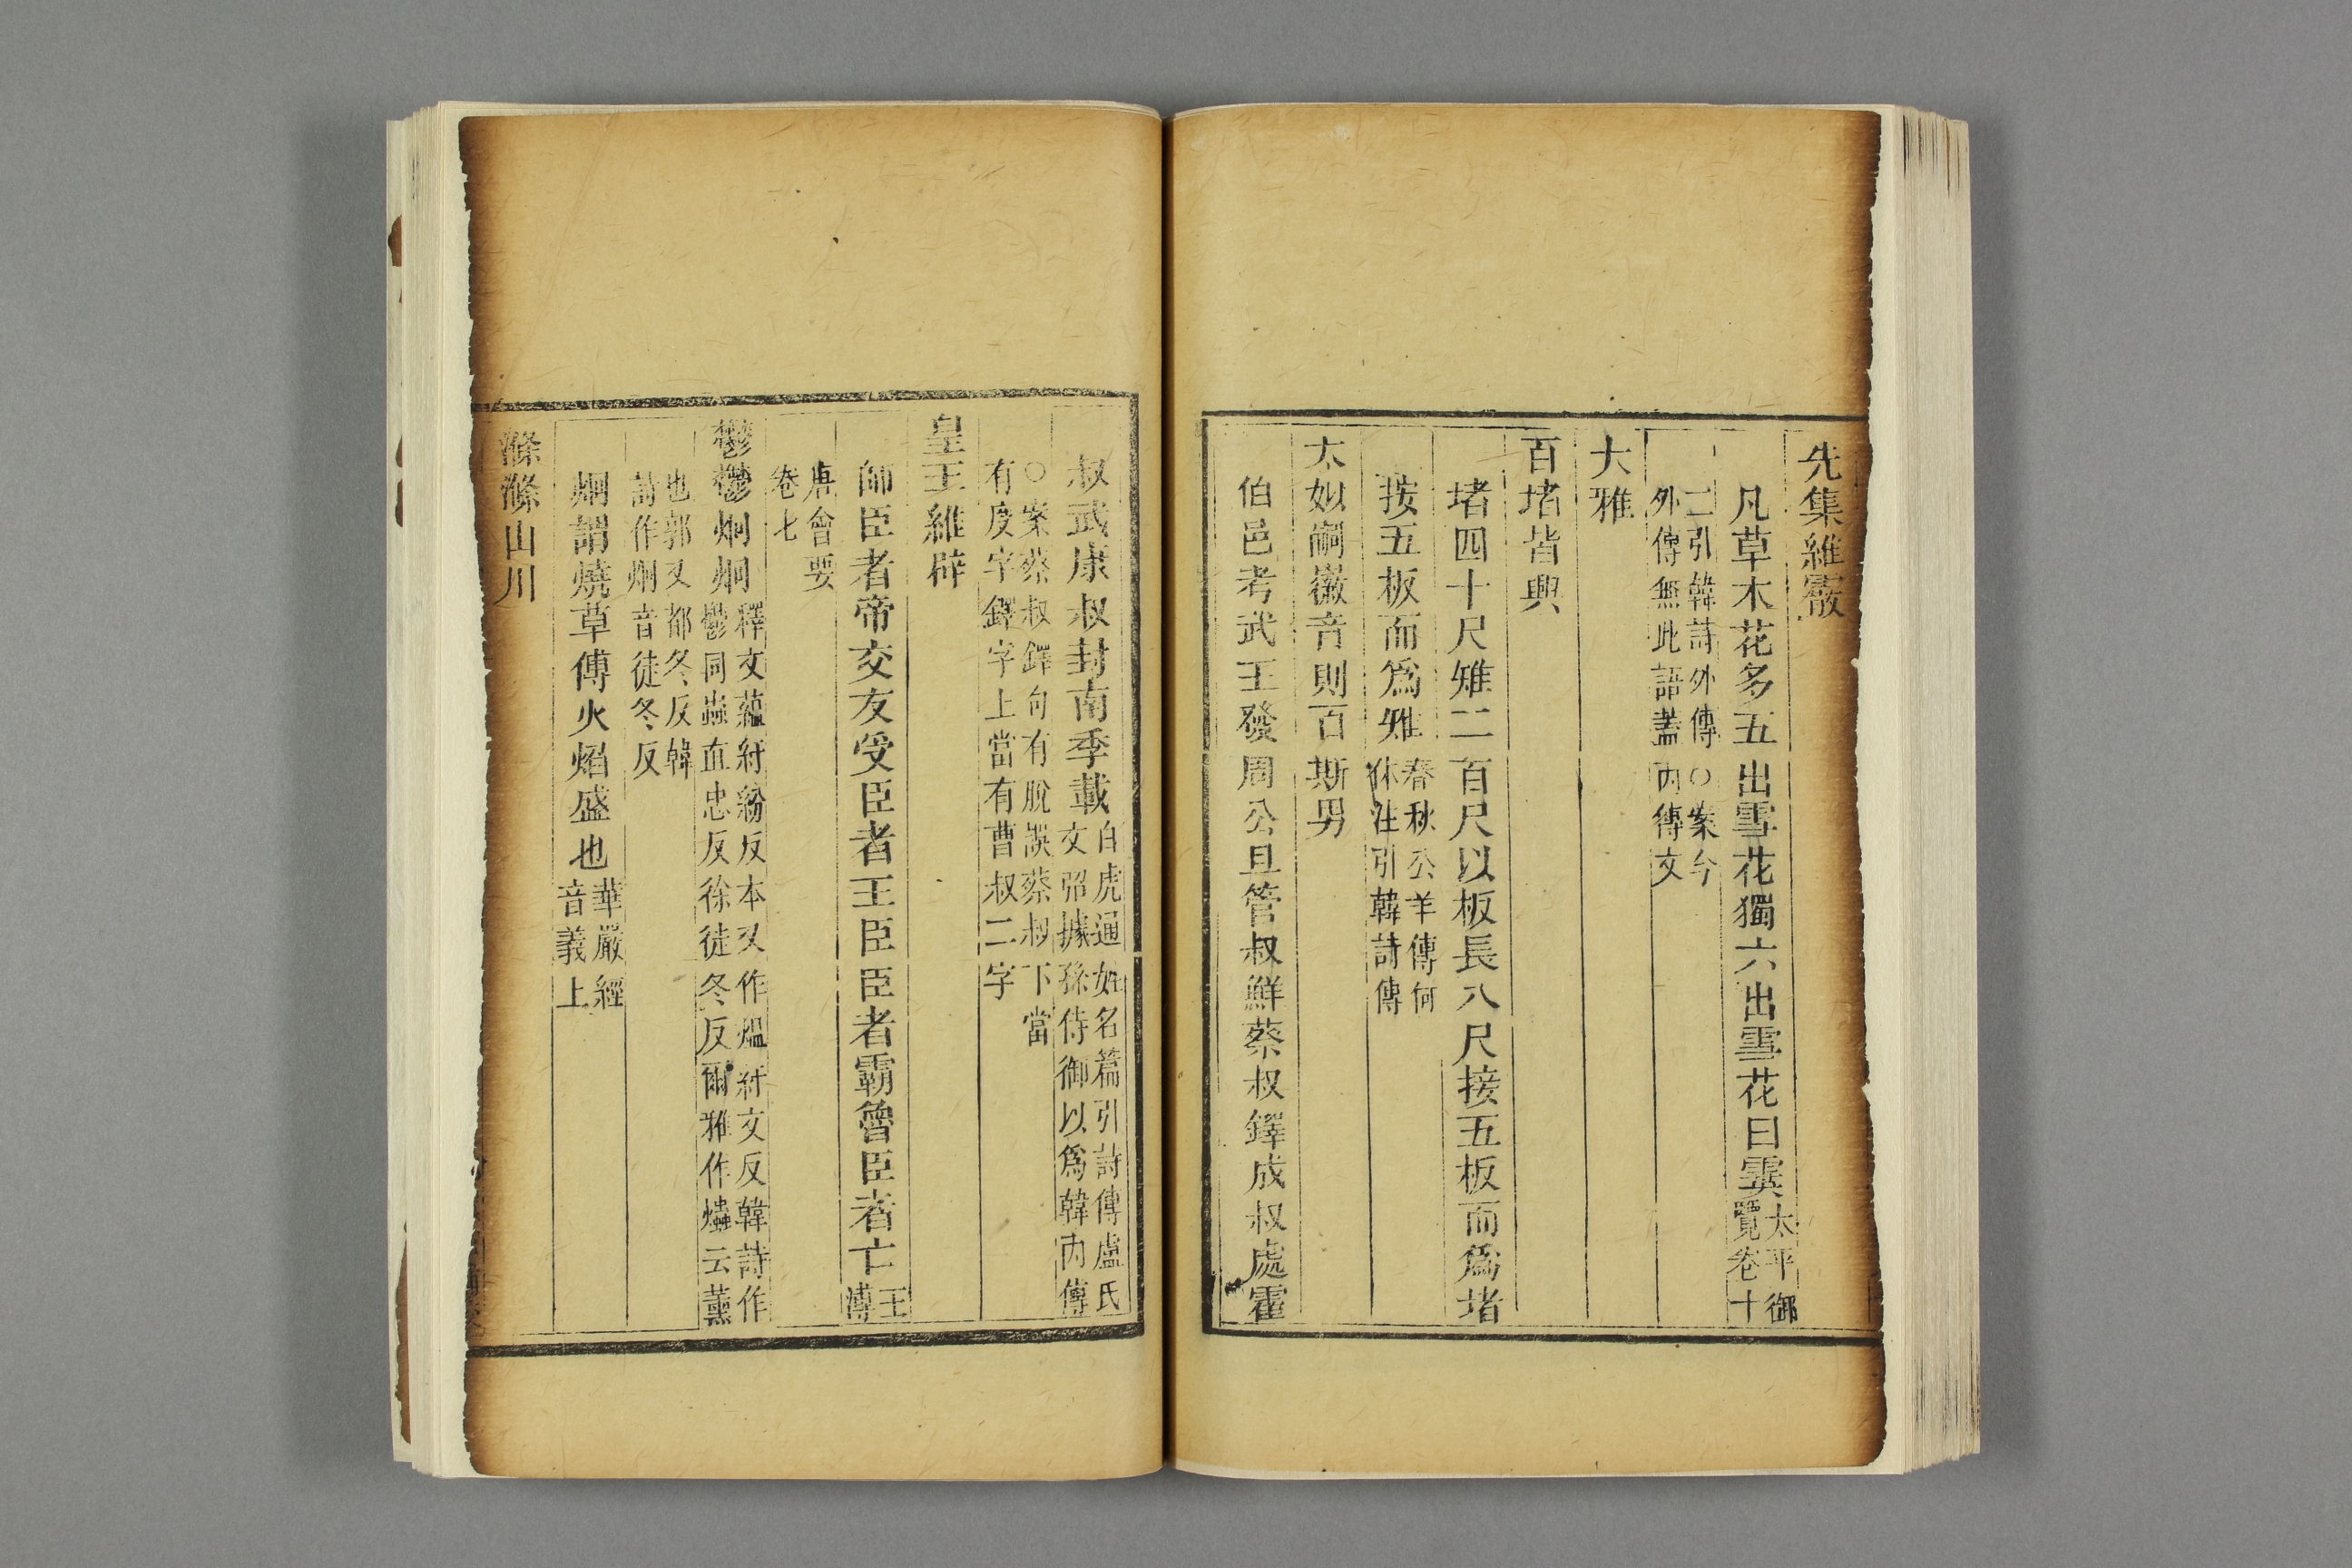 先集維霰
凡草木花多五出雪花獨六出雪花曰霙太平御覽卷十
二引韓詩外傳○案今外傳無此語蓋內傳文
大雅
百堵皆興
堵四十尺雉二百尺以板長八尺接五板而爲堵
接五板而爲雉春秋公羊傳何休注引韓詩傳
太姒嗣徽音則百斯男
伯邑考武王發周公旦管叔鮮蔡叔鐸成叔處霍
叔武康叔封南季載白虎通姓名篇引詩傳盧氏文弨據孫侍御以爲韓內傳
○案蔡叔鐸句有脫誤蔡叔下當有度字鐸字上當有曹叔二字
皇王維辟
師臣者帝交友受臣者王臣臣者霸魯臣者亡王溥
唐會要卷七
鬱鬱炯炯釋文蘊紆紛反本又作熅紆文反韓詩作鬱同蟲直忠反徐徒冬反爾雅作爞云薰
也郭又都冬反韓詩作炯音徒冬反
炯謂燒草傅火焰盛也華嚴經音義上
滌滌山川